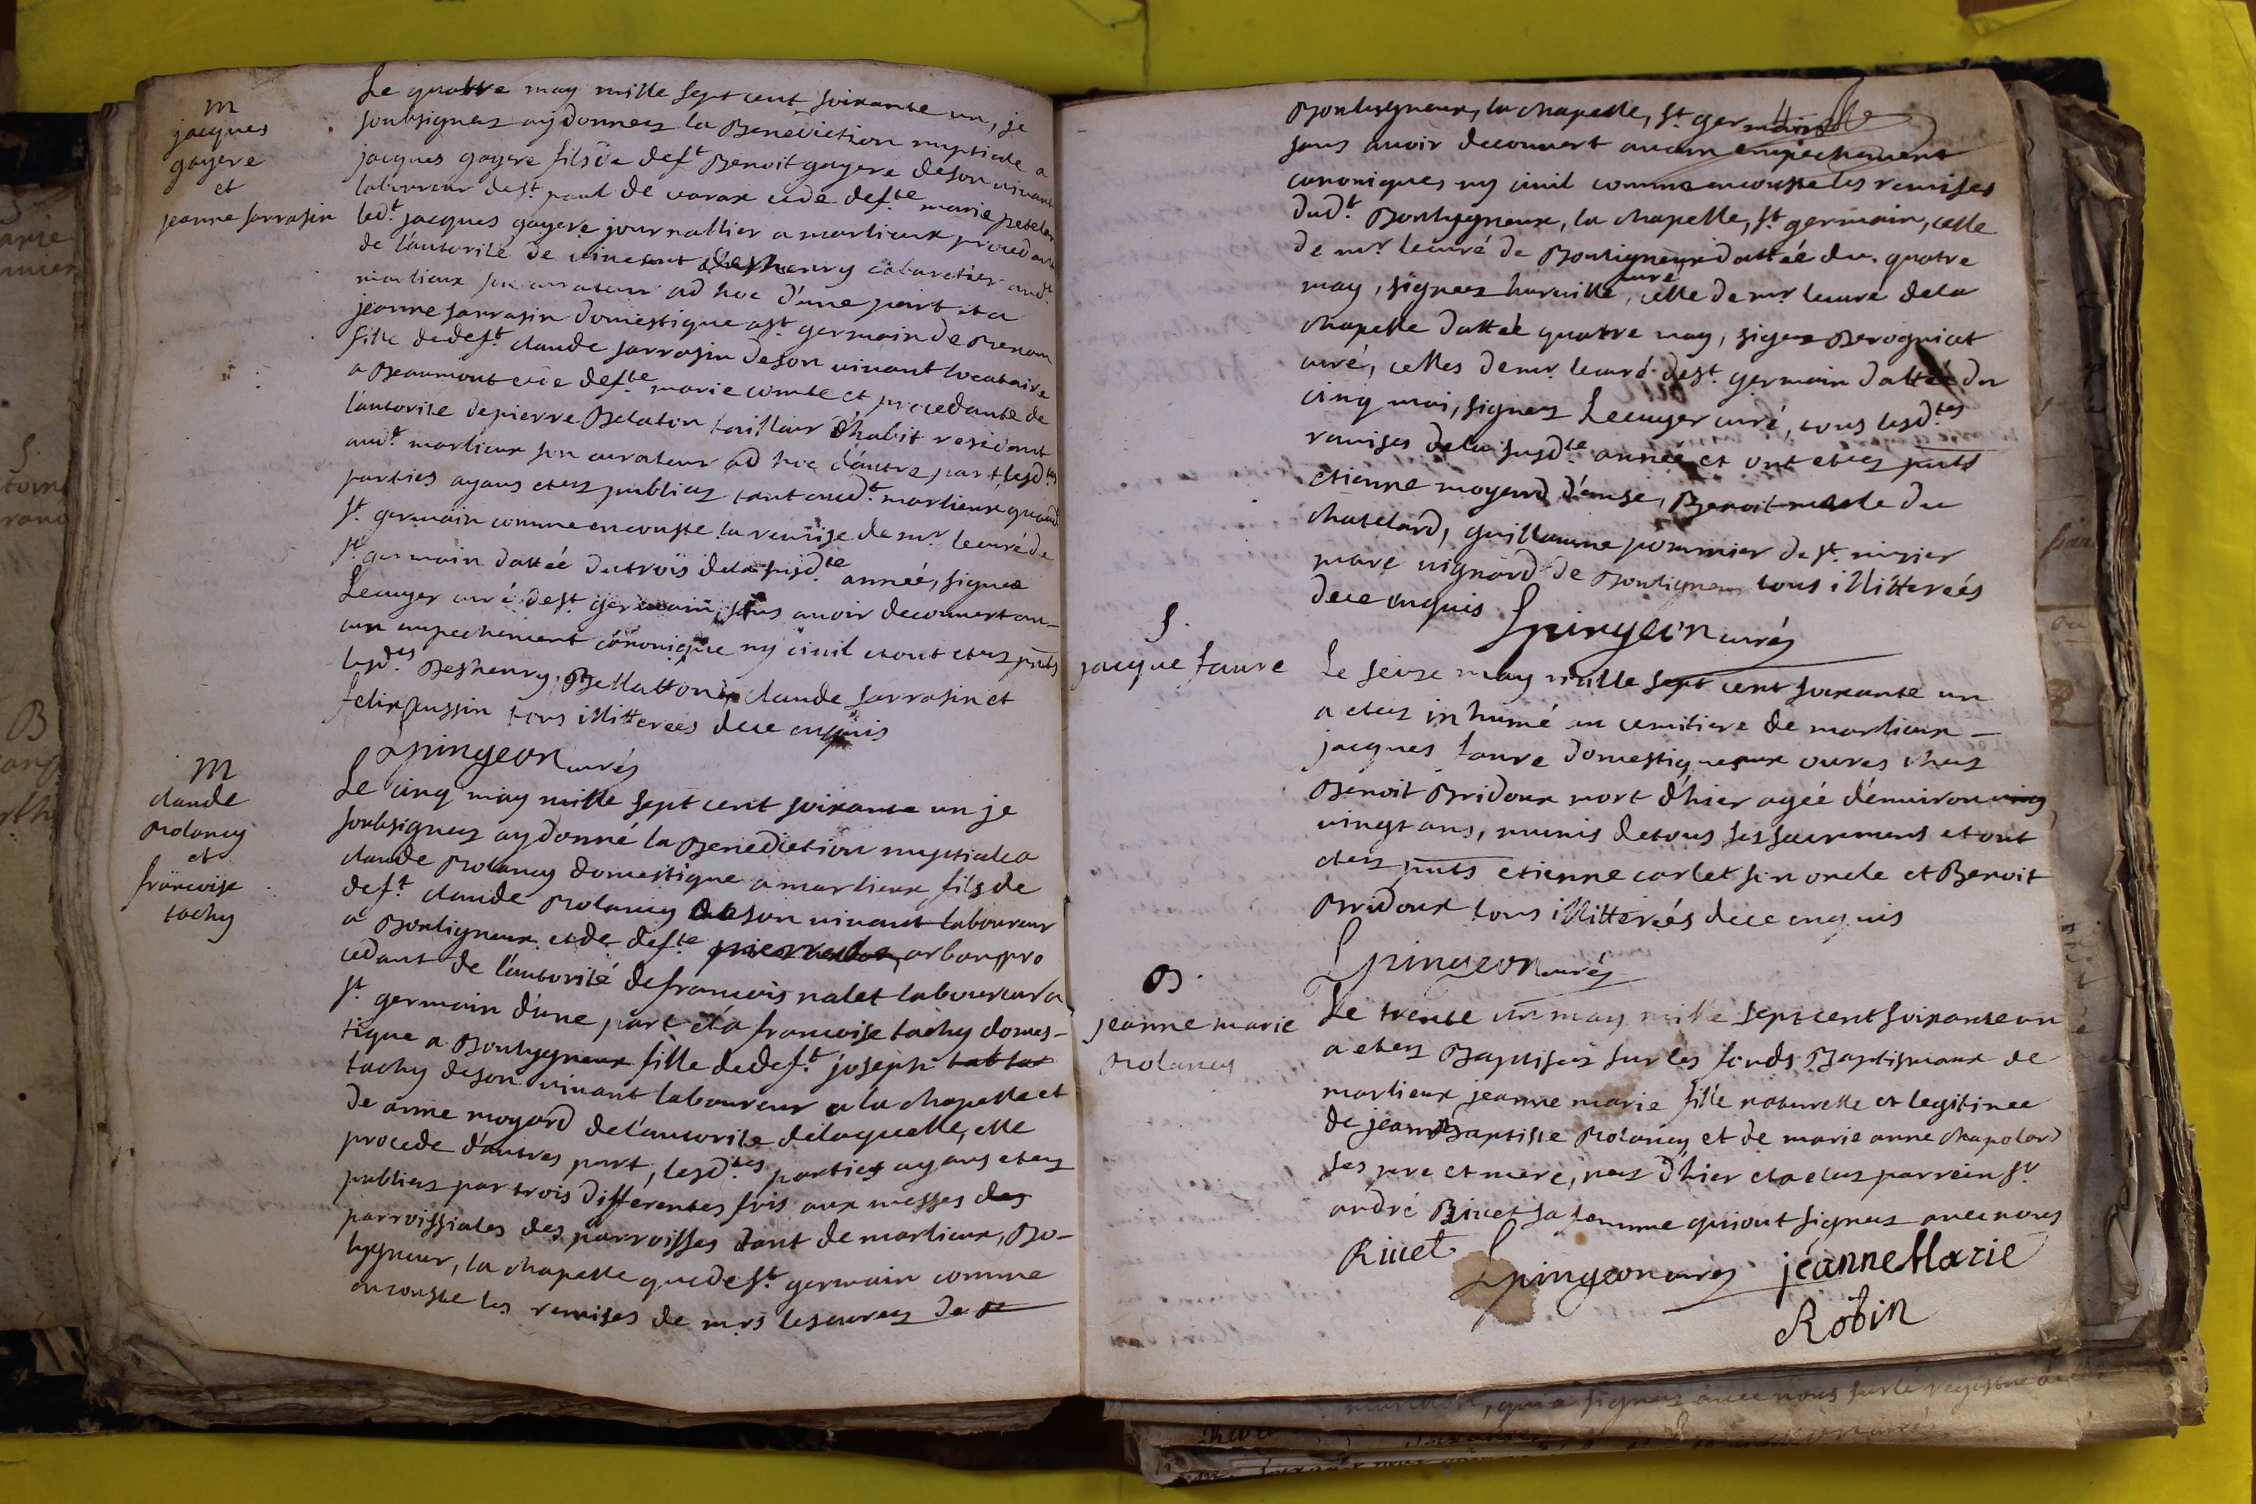 m
jacques
gayere
et
jeanne sarrasin
Le quattre may mille sept cent soixante un, je
soubsignez aÿ donnez la Benediction nuptiale a
jacques gayere fils de deft Benoit gayere de son vivant
laboureur de st paul de varax et de defte marie petetar
ledt jacques gayere journallier a marlieux procedant
de l'autorité de vincent deshenry cabaretier audt
marlieux son curateur ad hoc d'une part et a
jeanne sarrasin domestique a st germain de Renom
fille de deft claude sarrasin de son vivant locataire
a Beaumont et de defte marie comte et procedante de
l'autorité de pierre Belaton tailleur d'habit residant
audt marlieux son curateur ad hoc d'autre part lesdtes
parties ayans etez publiez tant audt marlieux qu'audt
st germain comme enconste la remise de mr le curé de
st germain dattée du trois de la susdte année, signez
Lecuyer curé de st germain, sans avoir decouvert au-
cun empechement canonique ny civil et ont etez pnts
lesdts Deshenry, Bellatton, claude sarrasin et
felix pussin tous illitterées de ce enquis
Spingeon curéz
m
claude
Rolancy
et
francoise
tachy
Le cinq may mille sept cent soixante un je
soubsignez ay donné la Benediction nuptiale a
claude Rolancy domestique a marlieux fils de
deft claude Rolancy de son vivant laboureur
a Bouligneux et de defte pierrette carbon, pro
cedant de l'autorité de francois nalet laboureur a
st germain d'une part et a francoise tachy domes-
tique a Bouligneux fille de deft joseph
tachy de son vivant laboureur a la chapelle et
de anne moyard de l'autorité de laquelle, elle
procede d'autres part, lesdtes parties ayans etez
publiez par trois differentes fois aux messes des
parroissiales des parroisses tant de marlieux, Bo-
lygneux, la chapelle que de st germain comme
enconste les remises de mrs les curez de
Boulygneux, la chapelle, st germain
sans avoir decouvert aucun empechement
canoniques ny civil comme enconste les remises
dudt Boulygneux, la chapelle, st germain, celle
de mr le curé de Bouligneux dattée du quatre
may, signez hurville curé, celle de mr le curé de la
chapelle dattée quatre may, signez Berogniat
curé, celles de mr le curé de st germain dattée du
cinq mai, signez Lecuyer curé, tous lesdtes
remises de la susdte année et ont etez pnts
etienne moyard d'ense, Benoit merle du
chatelard, guillaume pommier de st nizier
marc vignard de Bouligneux tous illitterées
de ce enquis Spingeon curéz
S.
jacque faure
Le seize may mille sept cent soixante un
a etez inhumé au cemitiere de marlieux
jacques faure domestique aux oures chez
Benoit Bridoux mort d'hier agée d'environ
vingt ans, munis de tous ses sacremens et ont
etez pnts etienne carlet son oncle et Benoit
Bridoux tous illitterées de ce enquis
Spingeon curéz
B.
jeanne marie
Rolancy
Le trente un may mille sept cent soixante un
a etez Baptisez sur les fonds Baptismaux de
marlieux jeanne marie fille naturelle et legitimee
de jean Baptiste Rolancy et de marie anne chapolard
ses pere et mere, nez d'hier et a etez parrein sr
andré Rivet sa femme qui ont signez avec nous
Rivet
Spingeon curéz
jéanne Marie
Robin